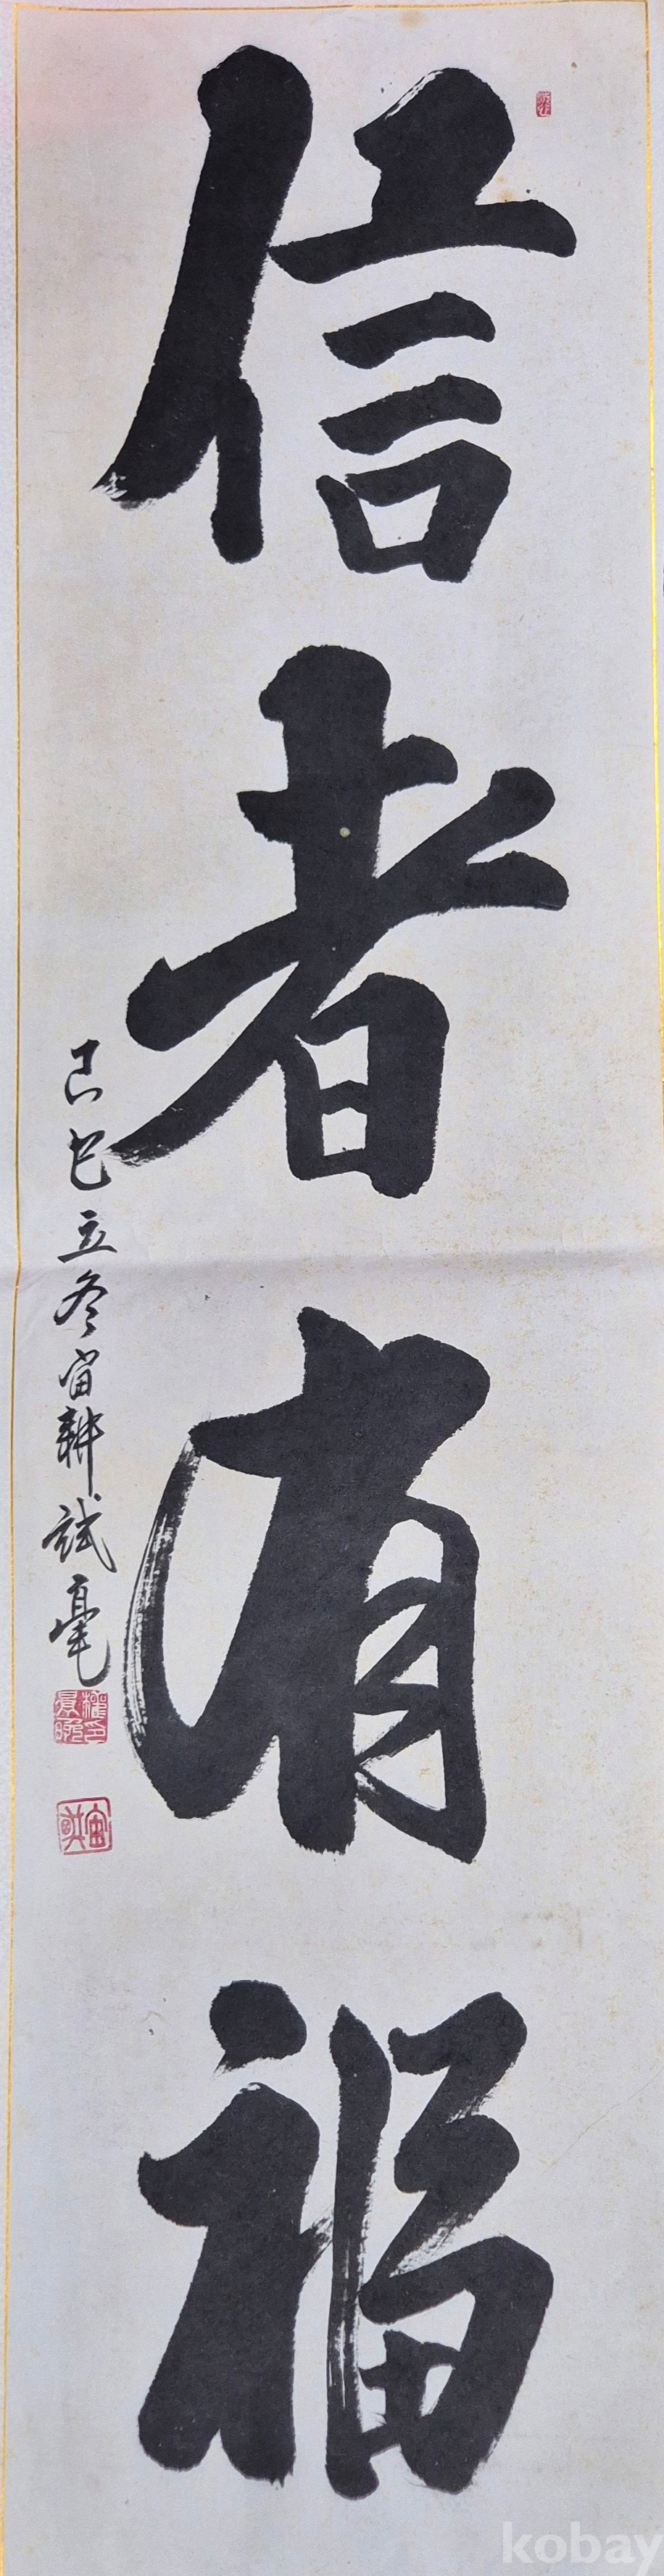 信者有福
己巳立冬 畓耕試毫
kobay